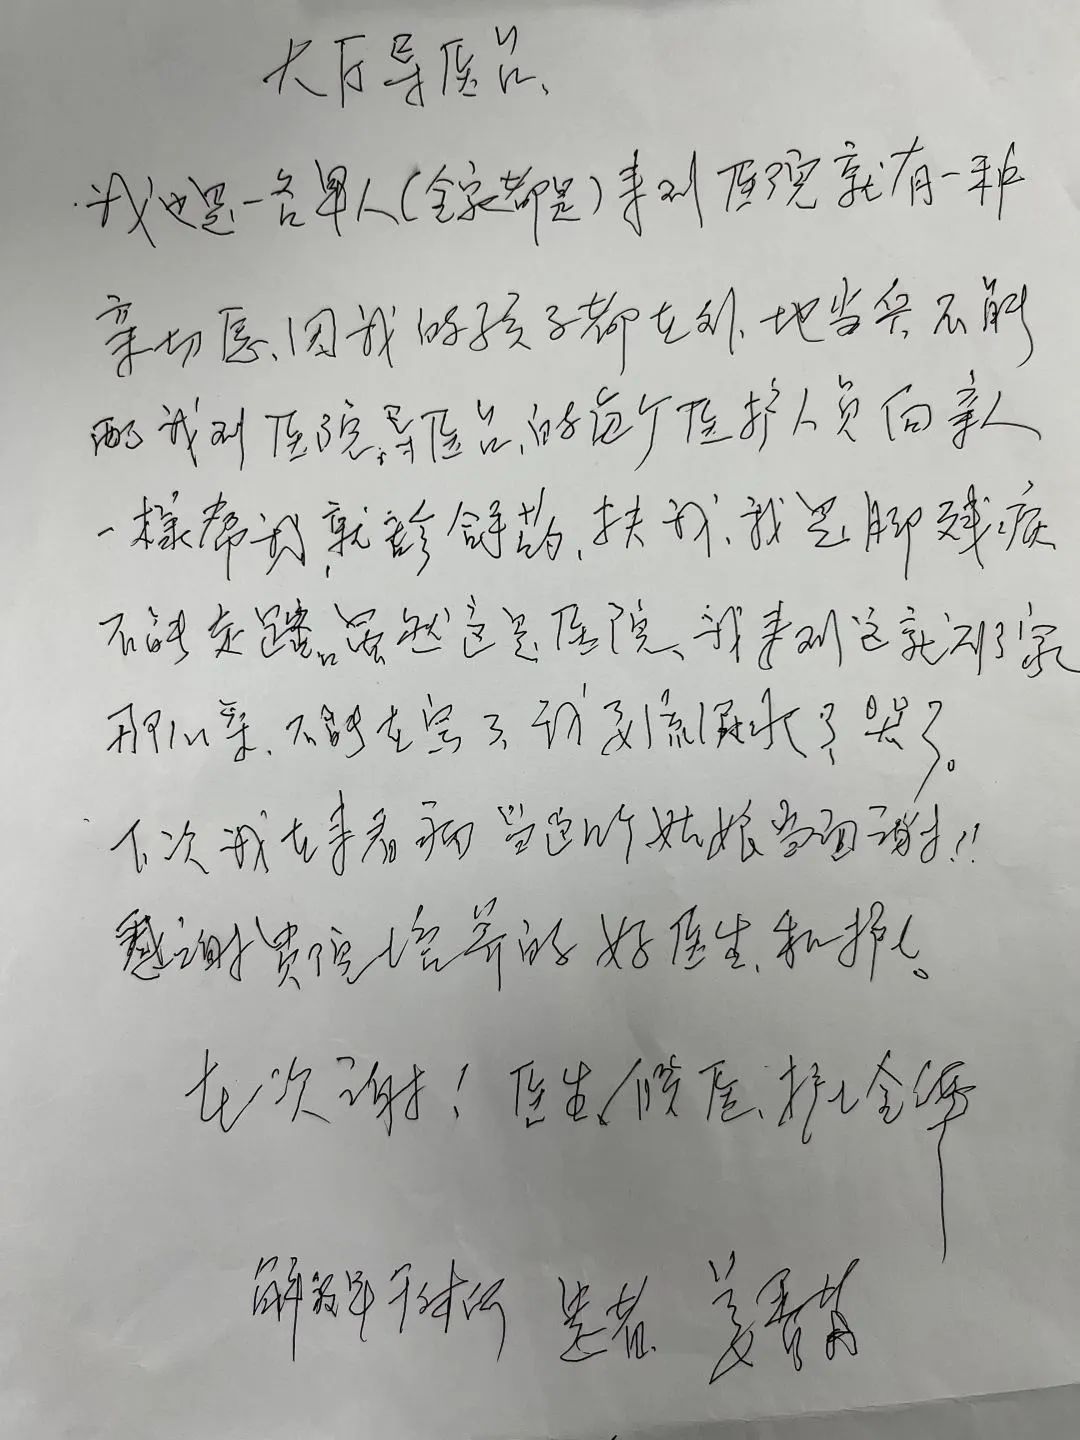 大厅导医台、
我也是一名军人(全家都是)来到医院就有一种
亲切感、因我的孩子都在外、地当兵不能
陪我到医院,导医台、的每个医护人员向亲人
一樣帮我,就診拿药、扶我、我是脚残疾
不能走路。虽然这是医院、我来到这就到了家
那么亲、不能在写了我要流泪水了哭了。
下次我在来看病 当 姑娘当面谢!!
感谢贵院培养的好医生、和护士。
在次谢!医生、假医、护士全体
解放军干休所 患者、姜